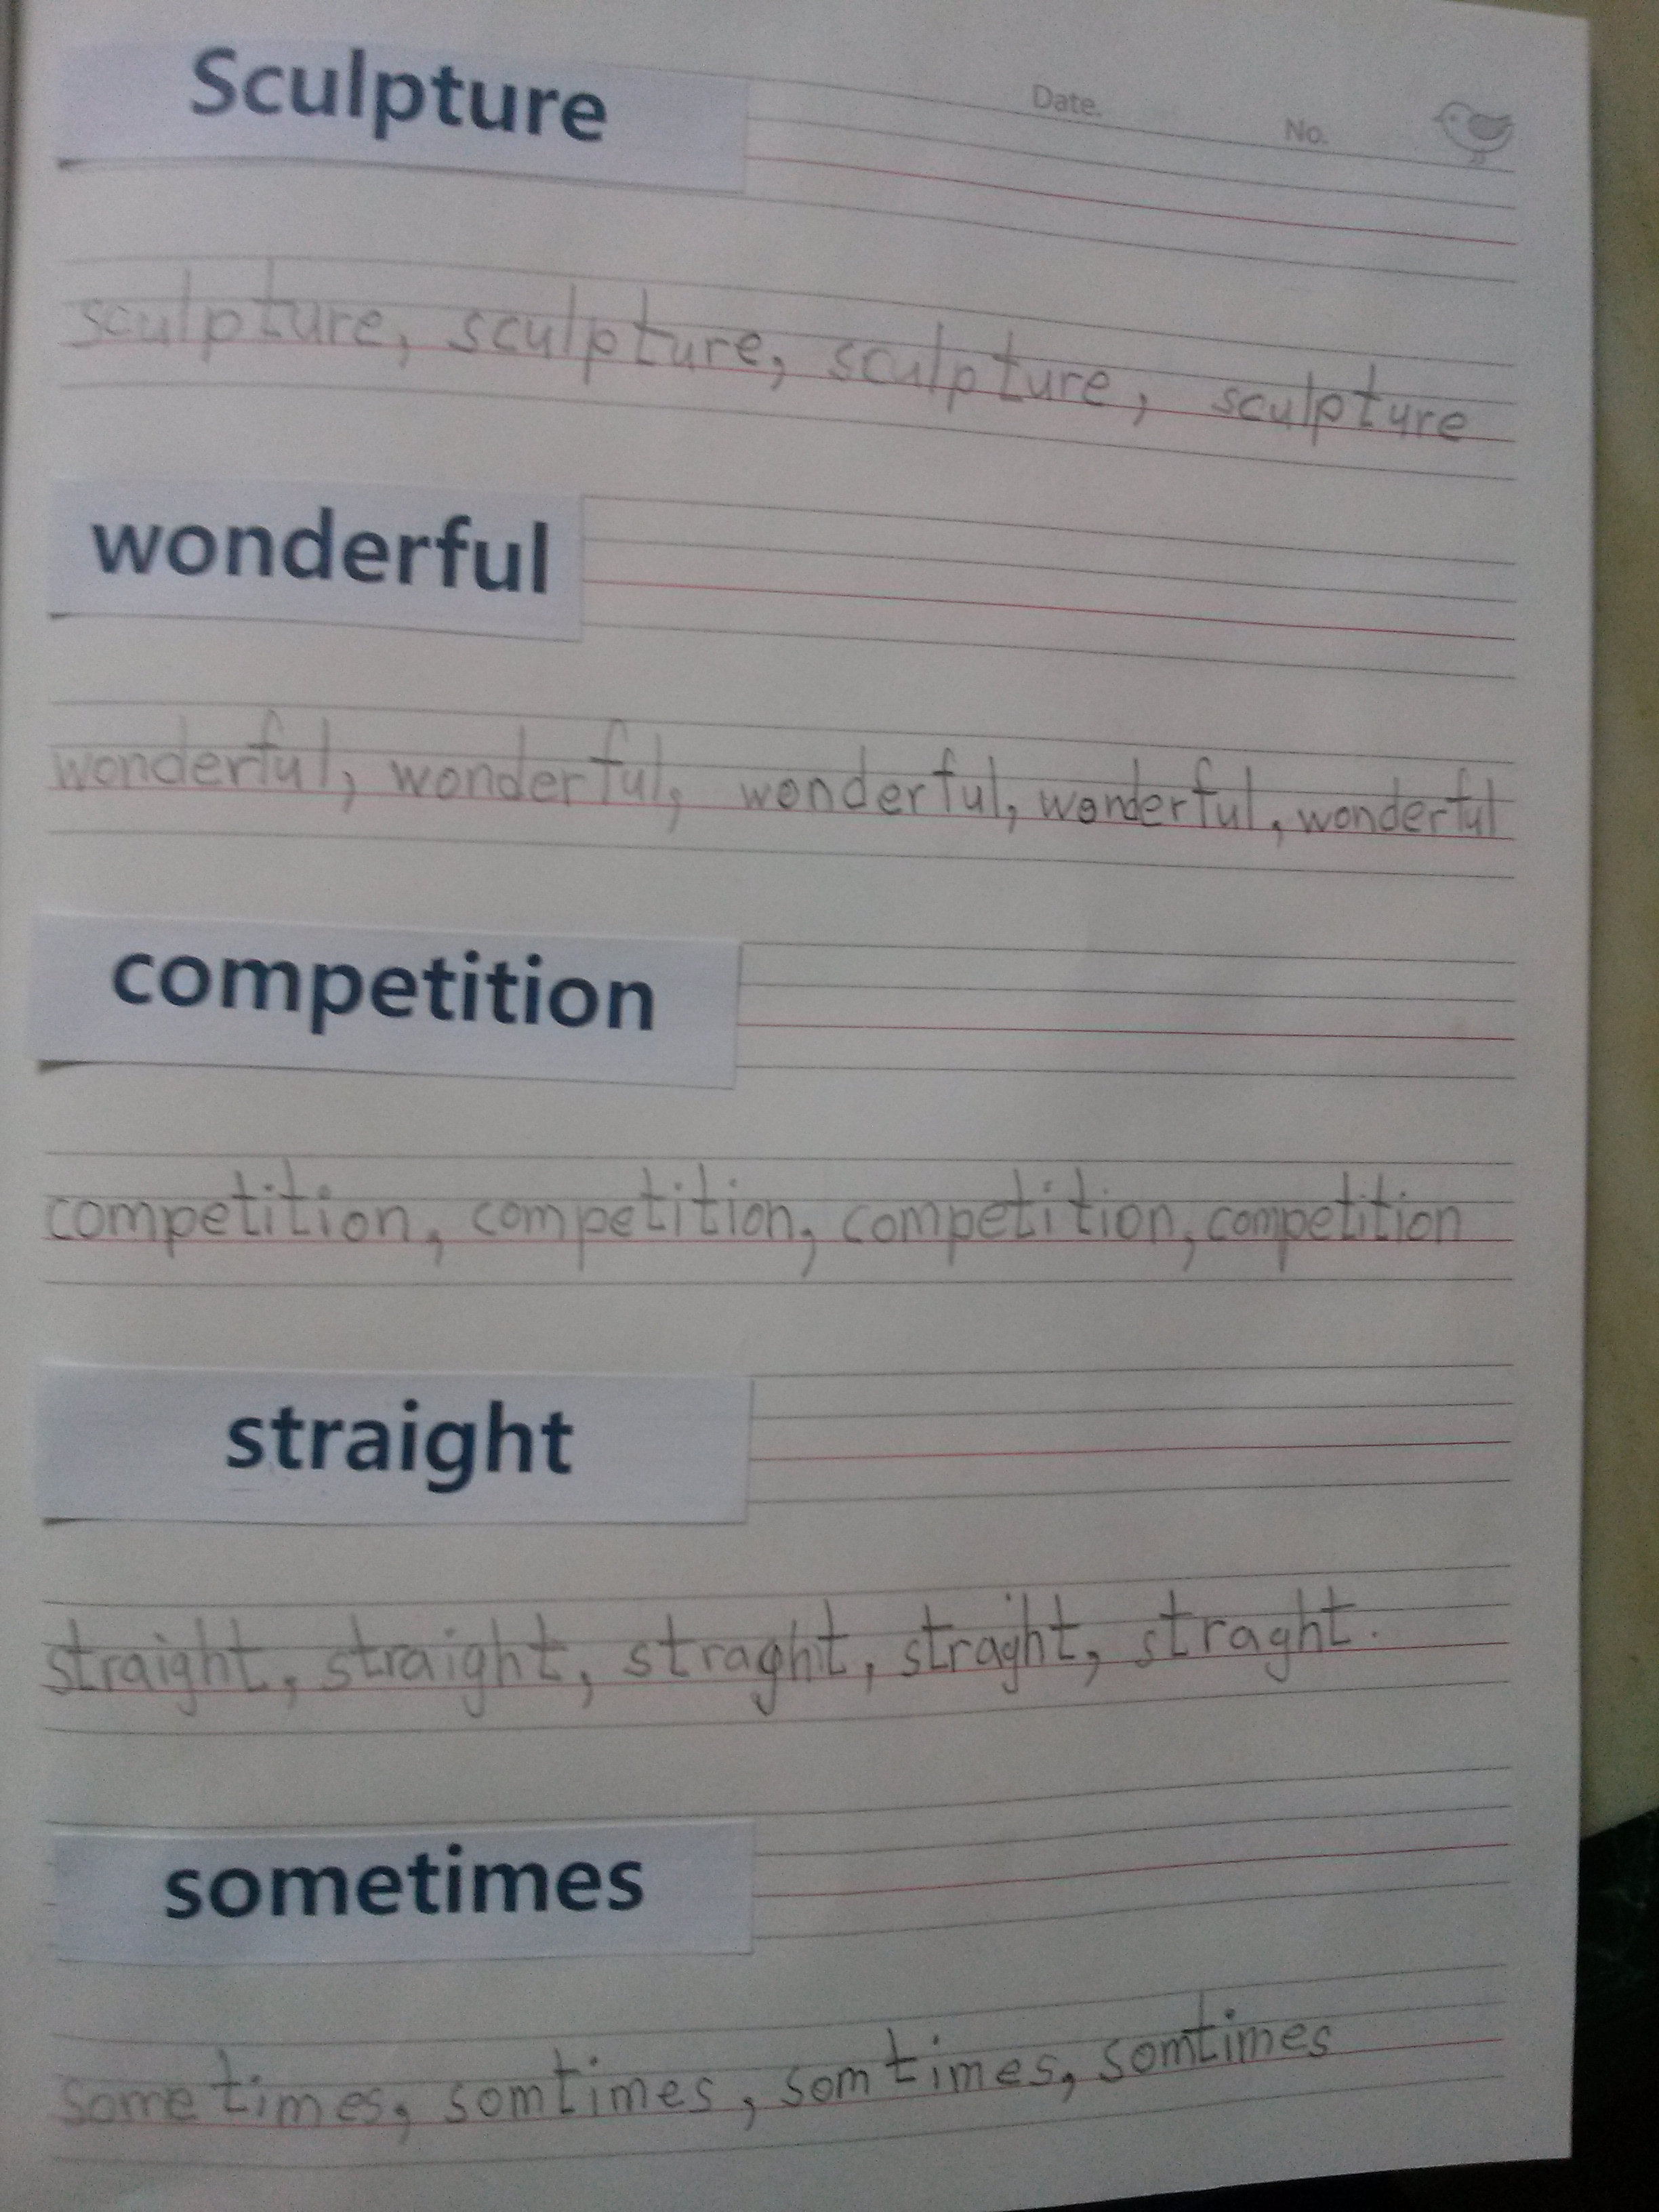 Sculpture
Date.
No.
sculpture, sculpture, sculpture, sculpture
wonderful
wonderful, wonderful, wonderful, wonderful, wonderful
competition
competition, competition, competition, competition
straight
straight, straight, straght, straght, straght.
sometimes
sometimes, somtimes, somtimes, somtimes